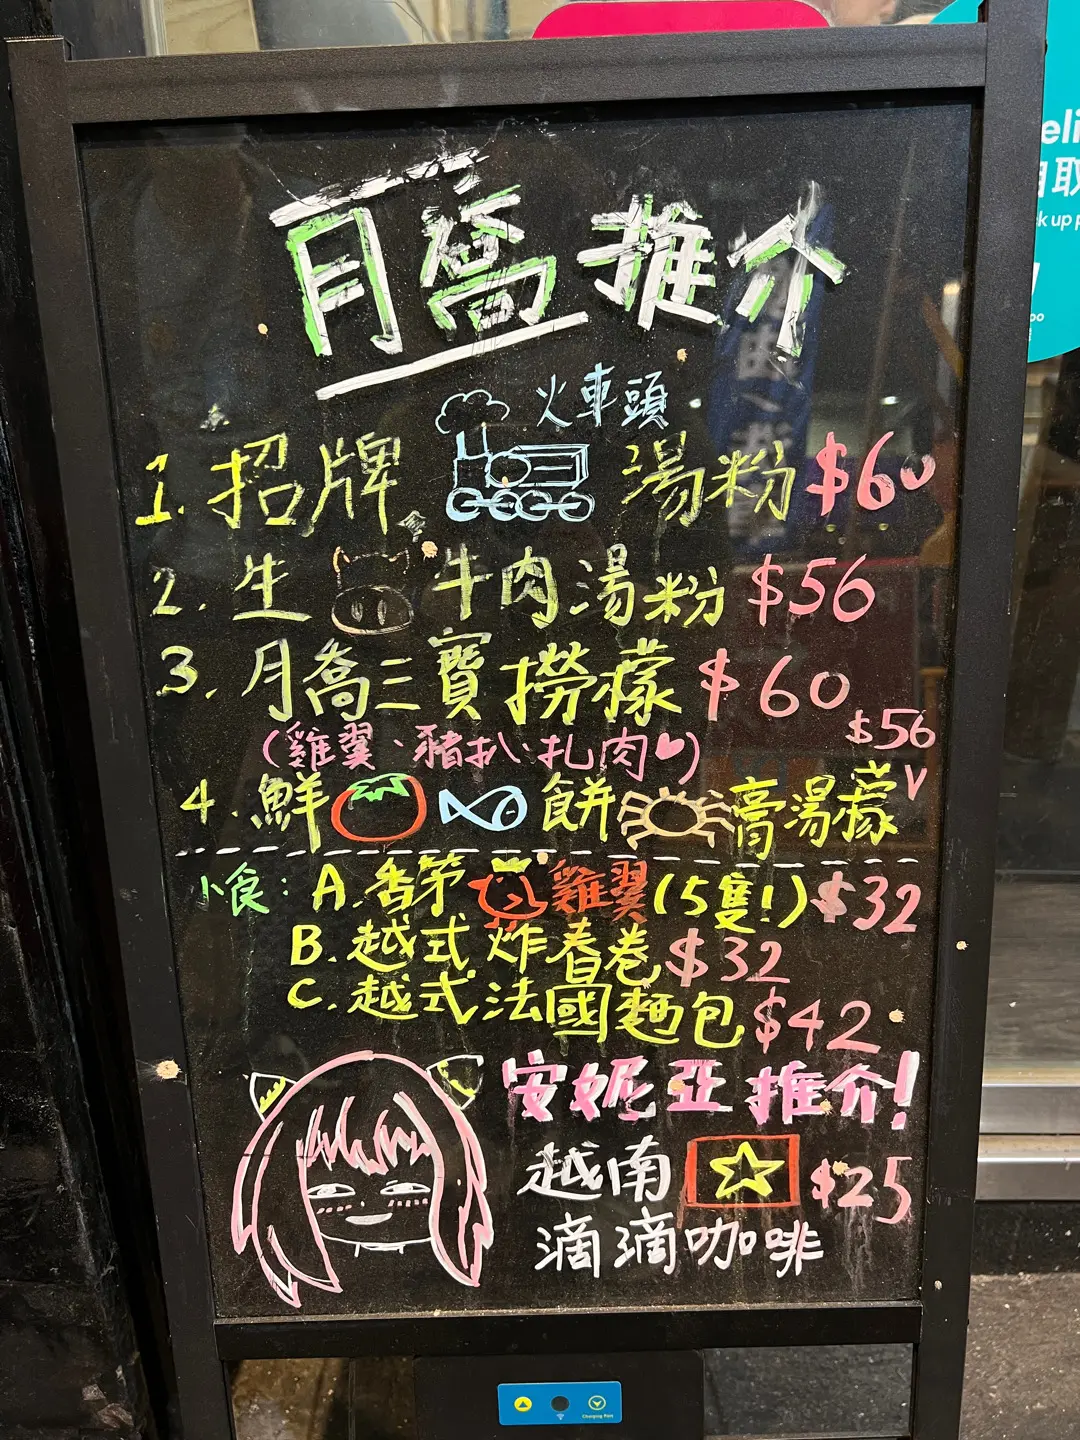 月喬推介
火車頭
1. 招牌 湯粉 $60
2. 生 牛肉湯粉 $56
3. 月喬三寶撈檬 $60
(雞翼、豬扒、扎肉)
$56
4. 鮮 餅 膏湯檬
小食: A. 香茅 雞翼(5隻!) $32
B. 越式炸春卷 $32
C. 越式法國麵包 $42
安妮亞推介!
越南 $25
滴滴咖啡
eli
自取
k up p
oo
Charging Port